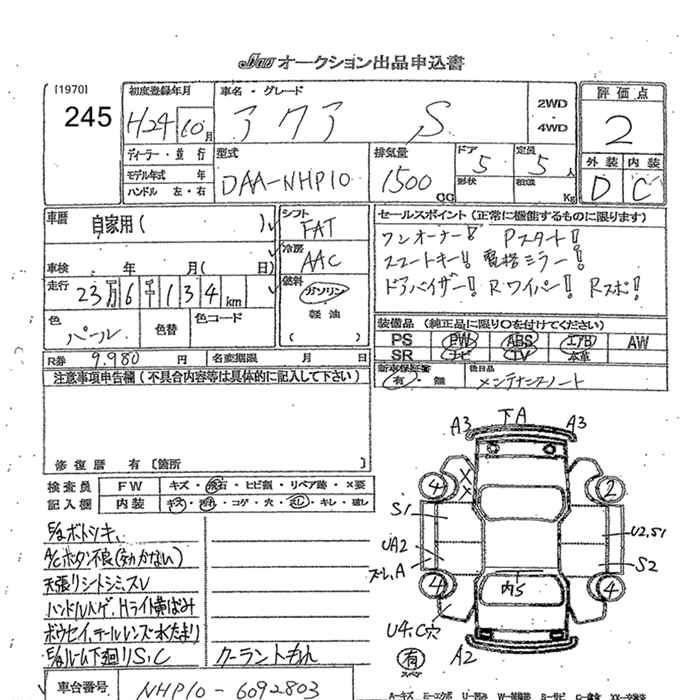 JAA オークション出品申込書
[1970]
245
初度登録年月
H24 10月
車名・グレード
アクア S
2WD
・
4WD
評価点
2
ディーラー・並行
モデル年式 年
ハンドル 左・右
型式
DAA-NHP10
排気量
1500 CC
ドア
5
形状
定員
5人
積載
Kg
外装 内装
D C
車歴
自家用( )
シフト
FAT
冷房
AAC
燃料
ガソリン
軽油
( )
車検 年 月( 日)
走行 23万6千134km
色
パール
色替
色コード
R券 9.980 円 名変期限 月 日
セールスポイント(正常に機能するものに限ります)
ワンオーナー! Pスタート!
スマートキー! 電格ミラー!
ドアバイザー! Rワイパー! Rスポ!
装備品 (純正品に限り○を付けてください)
PS PW ABS エアB AW
SR ナビ TV 本革
新車保証書
有・無
後日品
メンテナンスノート
注意事項申告欄(不具合内容等は具体的に記入して下さい)
修復歴 有 〔箇所 〕
検査員
記入欄
FW キズ・飛石・ヒビ割・リペア跡・×要
内装 キズ・汚れ・コゲ・穴・スレ・キレ・破レ
A/Cボタン不良(効かない)
天張リシートシミ、スレ
ハンドルハゲ、Hライト黄ばみ
ボウセイ、テールレンズ水たまり
ルーム下廻りS、C
クーラントもれ
車台番号 NHP10-6092803
A3 下A A3
4 2
S1
UA2
ズレ、A
U2,S1
S2
4 4
内S
U4、C穴
有
スペア
A2